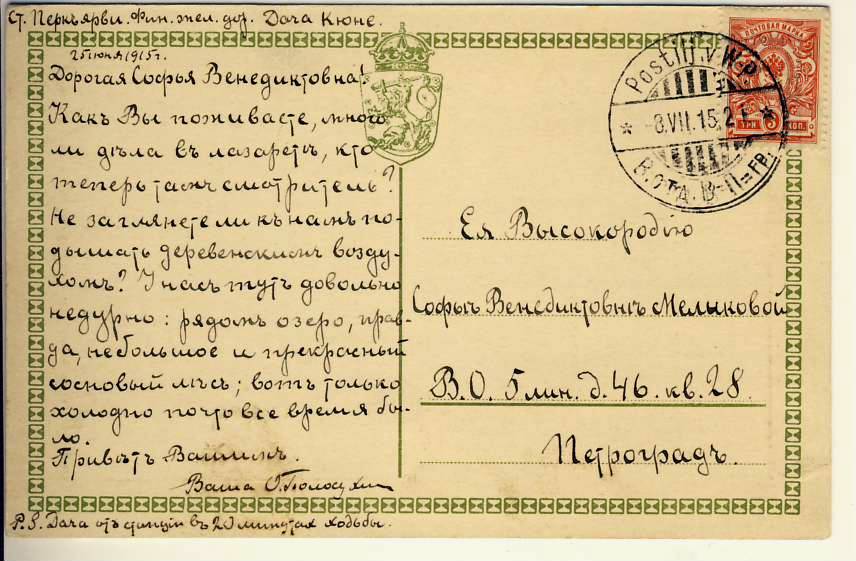 Ст. Перкъярви. Фин. жел. дор. Дача Кюне.
25 июня 1915 г.
Дорогая Софья Венедиктовна!
Какъ Вы поживаете, много
ли дѣла въ лазаретѣ, кто
теперь тамъ смотритель?
Не заглянете ли къ намъ по-
дышать деревенскимъ возду-
хомъ? У насъ тутъ довольно
недурно: рядомъ озеро, прав-
да, небольшое и прекрасный
сосновый лѣсъ; вотъ только
холодно почти все время бы-
ло.
Привѣтъ Вашимъ.
Ваша О.
P.S. Дача отъ станціи въ 20 минутахъ ходьбы.
Postilj. V.W.p.
8.VII.15
ПОЧТОВАЯ МАРКА
ТРИ 3 КОП.
Ея Высокородію
Софьѣ Венедиктовнѣ Мелыковой
В.О. 5 лин. д. 46. кв. 28.
Петроградъ.